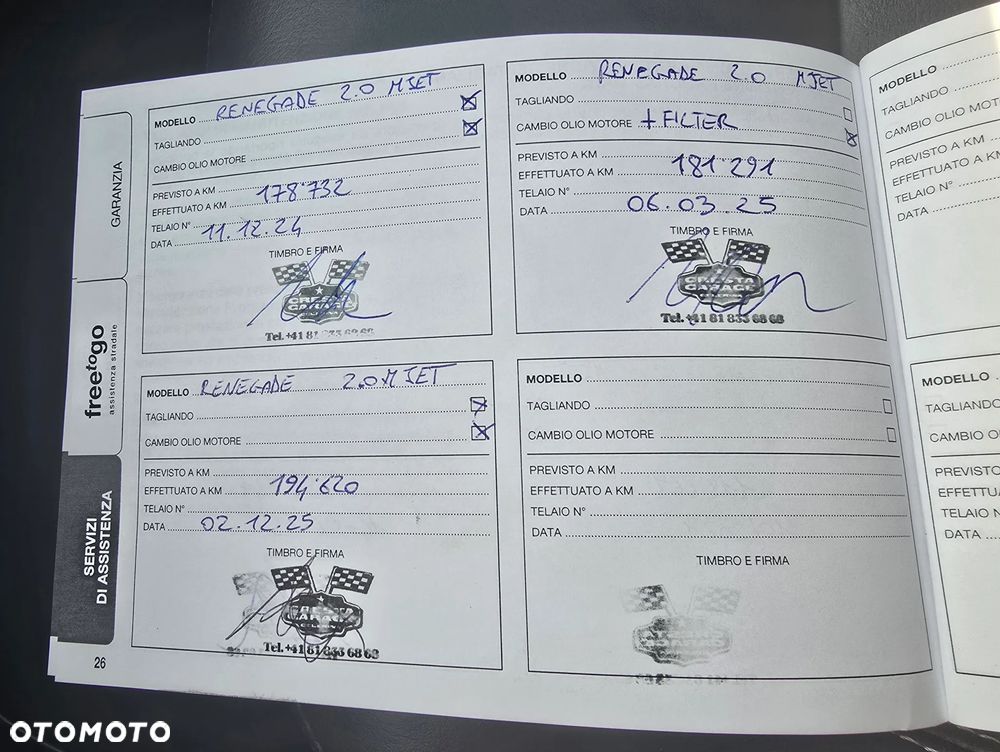 MODELLO RENEGADE 2.0 MJET
TAGLIANDO
CAMBIO OLIO MOTORE
PREVISTO A KM
EFFETTUATO A KM 178'732
TELAIO N°
DATA 11.12.24
TIMBRO E FIRMA
CRESTA
GARAGE
Tel. +41 81 833 68 68
MODELLO RENEGADE 2.0 MJET
TAGLIANDO
CAMBIO OLIO MOTORE + FILTER
PREVISTO A KM
EFFETTUATO A KM 181'291
TELAIO N°
DATA 06.03.25
TIMBRO E FIRMA
CRESTA
GARAGE
Tel. +41 81 833 68 68
MODELLO RENEGADE 2.0 MJET
TAGLIANDO
CAMBIO OLIO MOTORE
PREVISTO A KM
EFFETTUATO A KM 194'620
TELAIO N°
DATA 02.12.25
TIMBRO E FIRMA
CRESTA
GARAGE
CELERINA
Tel. +41 81 833 68 68
MODELLO
TAGLIANDO
CAMBIO OLIO MOTORE
PREVISTO A KM
EFFETTUATO A KM
TELAIO N°
DATA
TIMBRO E FIRMA
MODELLO
TAGLIANDO
CAMBIO OLIO MOT
PREVISTO A KM
EFFETTUATO A KM
TELAIO N°
DATA
MODELLO
TAGLIANDO
CAMBIO OLIO
PREVISTO
EFFETTU
TELAIO N
DATA
GARANZIA
freetogo
assistenza stradale
SERVIZI
DI ASSISTENZA
26
OTOMOTO